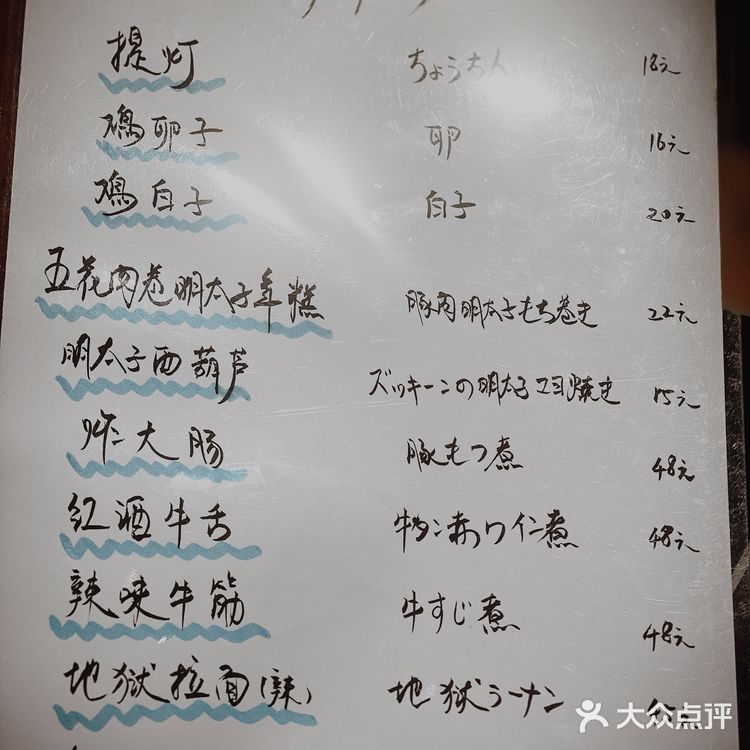 提灯 ちょうちん 18元
鸡卵子 卵 16元
鸡白子 白子 20元
五花肉卷明太子年糕 豚肉明太子もち巻き 22元
明太子西葫芦 ズッキーニの明太子マヨ焼き 15元
炸大肠 豚もつ煮 48元
红酒牛舌 牛タン赤ワイン煮 48元
辣味牛筋 牛すじ煮 48元
地狱拉面(辣) 地獄ラーメン
大众点评